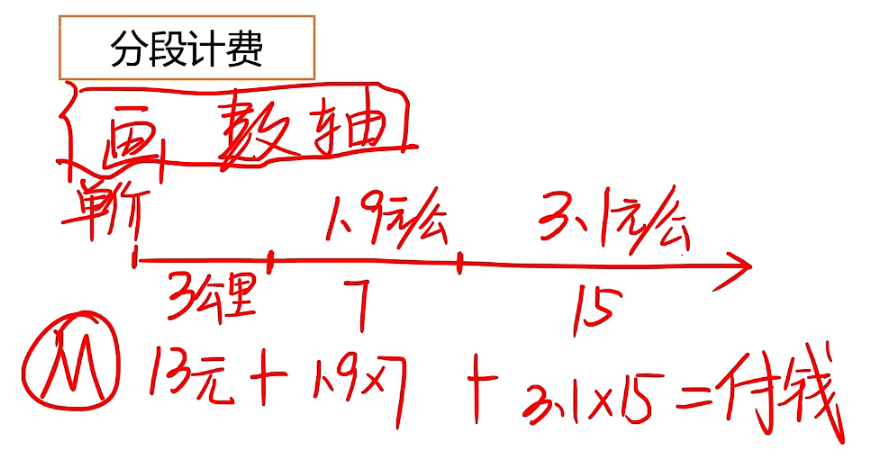 分段计费
画数轴
单价 1.9元/公 3.1元/公
3公里 7 15
M 13元+1.9×7+3.1×15=付钱